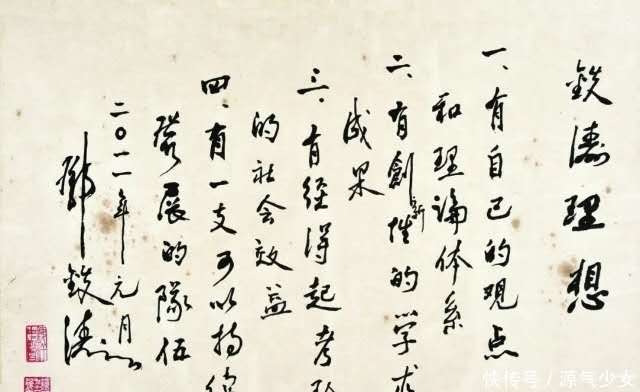 鉄濤理想
一、有自己的观点
和理論体系
二、有創新性的学术
成果
三、有经得起考
的社会效益
四、有一支可以持
發展的隊伍
二〇一一年元月
鄧鉄濤
快传号／源气少女